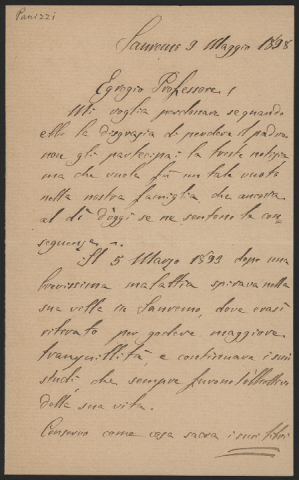 Panizzi
Sanremo 9 Maggio 1898
Egregio Professore!
Mi voglia perdonare se quando
ebbi la disgrazia di perdere il padre
non gli partecipai la triste notizia
ma che vuole fu un tale vuoto
nella nostra famiglia, che ancora
al dì d'oggi se ne sentono le con-
seguenze.
Il 5 Marzo 1893 dopo una
brevissima malattia spirava nella
sua villa in Sanremo, dove erasi
ritirato per godere maggiore
tranquillità, e continuare i suoi
studi, che sempre furono
della sua vita.
Conservo come cosa sacra i suoi libri